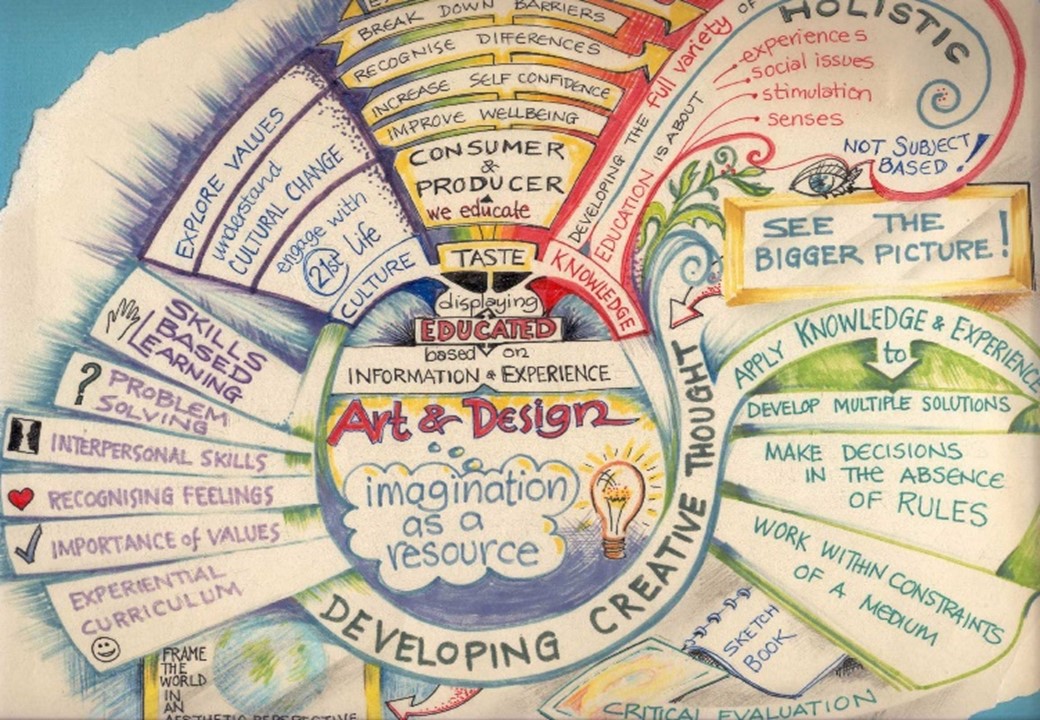 BREAK DOWN BARRIERS
RECOGNISE DIFFERENCES
INCREASE SELF CONFIDENCE
IMPROVE WELLBEING
CONSUMER
&
PRODUCER
we educate
TASTE
EXPLORE VALUES
understand
CULTURAL CHANGE
engage with
21st life
CULTURE
KNOWLEDGE
DEVELOPING THE full variety OF
EDUCATION IS ABOUT
HOLISTIC
experiences
social issues
stimulation
senses
NOT SUBJECT
BASED!
SEE THE
BIGGER PICTURE!
displaying
EDUCATED
based on
INFORMATION & EXPERIENCE
Art & Design
imagination
as a
resource
DEVELOPING CREATIVE THOUGHT
SKILLS
BASED
LEARNING
?
PROBLEM
SOLVING
INTERPERSONAL SKILLS
RECOGNISING FEELINGS
IMPORTANCE of VALUES
EXPERIENTIAL
CURRICULUM
APPLY KNOWLEDGE & EXPERIENCE
to
DEVELOP MULTIPLE SOLUTIONS
MAKE DECISIONS
IN THE ABSENCE
OF RULES
WORK WITHIN CONSTRAINTS
OF A MEDIUM
SKETCH
BOOK
CRITICAL EVALUATION
FRAME
THE
WORLD
IN
AN
AESTHETIC PERSPECTIVE